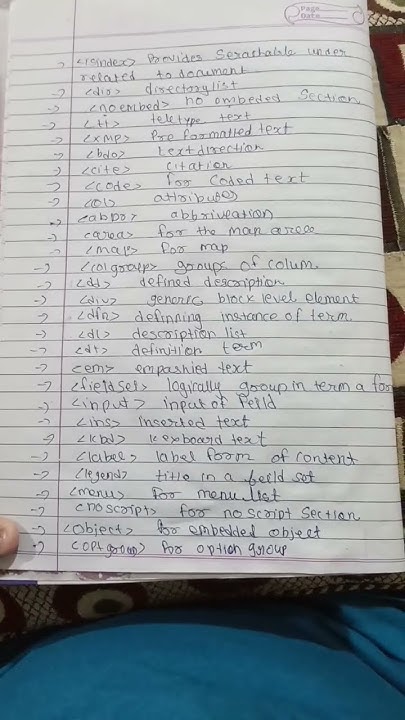 Page
Date
→ <isindex> Provides Serachable under
related to document
→ <dio> directory list
→ <noembed> no embeded Section
→ <tt> teletype text
→ <xmp> Pre formatted text
→ <bdo> text direction
→ <cite> citation
→ <code> for Coded text
→ <Ol> attributes
→ <abbo> abbriveation
→ <area> for the map areas
→ <map> for map
→ <colgroup> groups of colum.
→ <dd> defined description
→ <div> generic block level element
→ <dfn> definning instance of term.
→ <dl> description list
→ <dt> definition term
→ <em> empashied text
→ <fieldset> logically group in term a for
→ <input> input of feild
→ <ins> inserted text
→ <kbd> kexboard text
→ <label> label form of content
→ <legend> title in a feild set
→ <menu> for menu list
→ <noscript> for no script section
→ <object> for embedded object
→ <optgroup> for option group